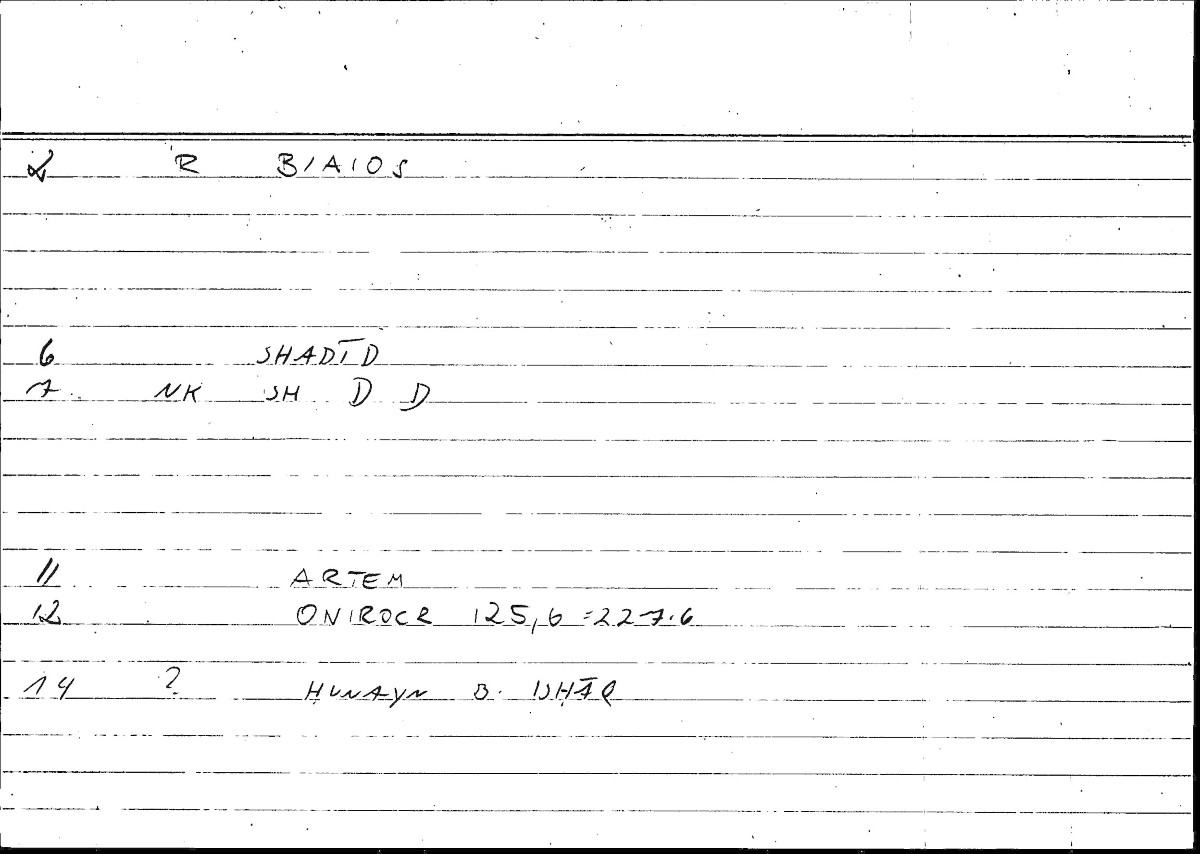 2 R BIAIOS
6 SHADĪD
7 NK SH D D
11 ARTEM
12 ONIROCR 125,6 =227.6
14 ? ḤUNAYN B. ISḤĀQ